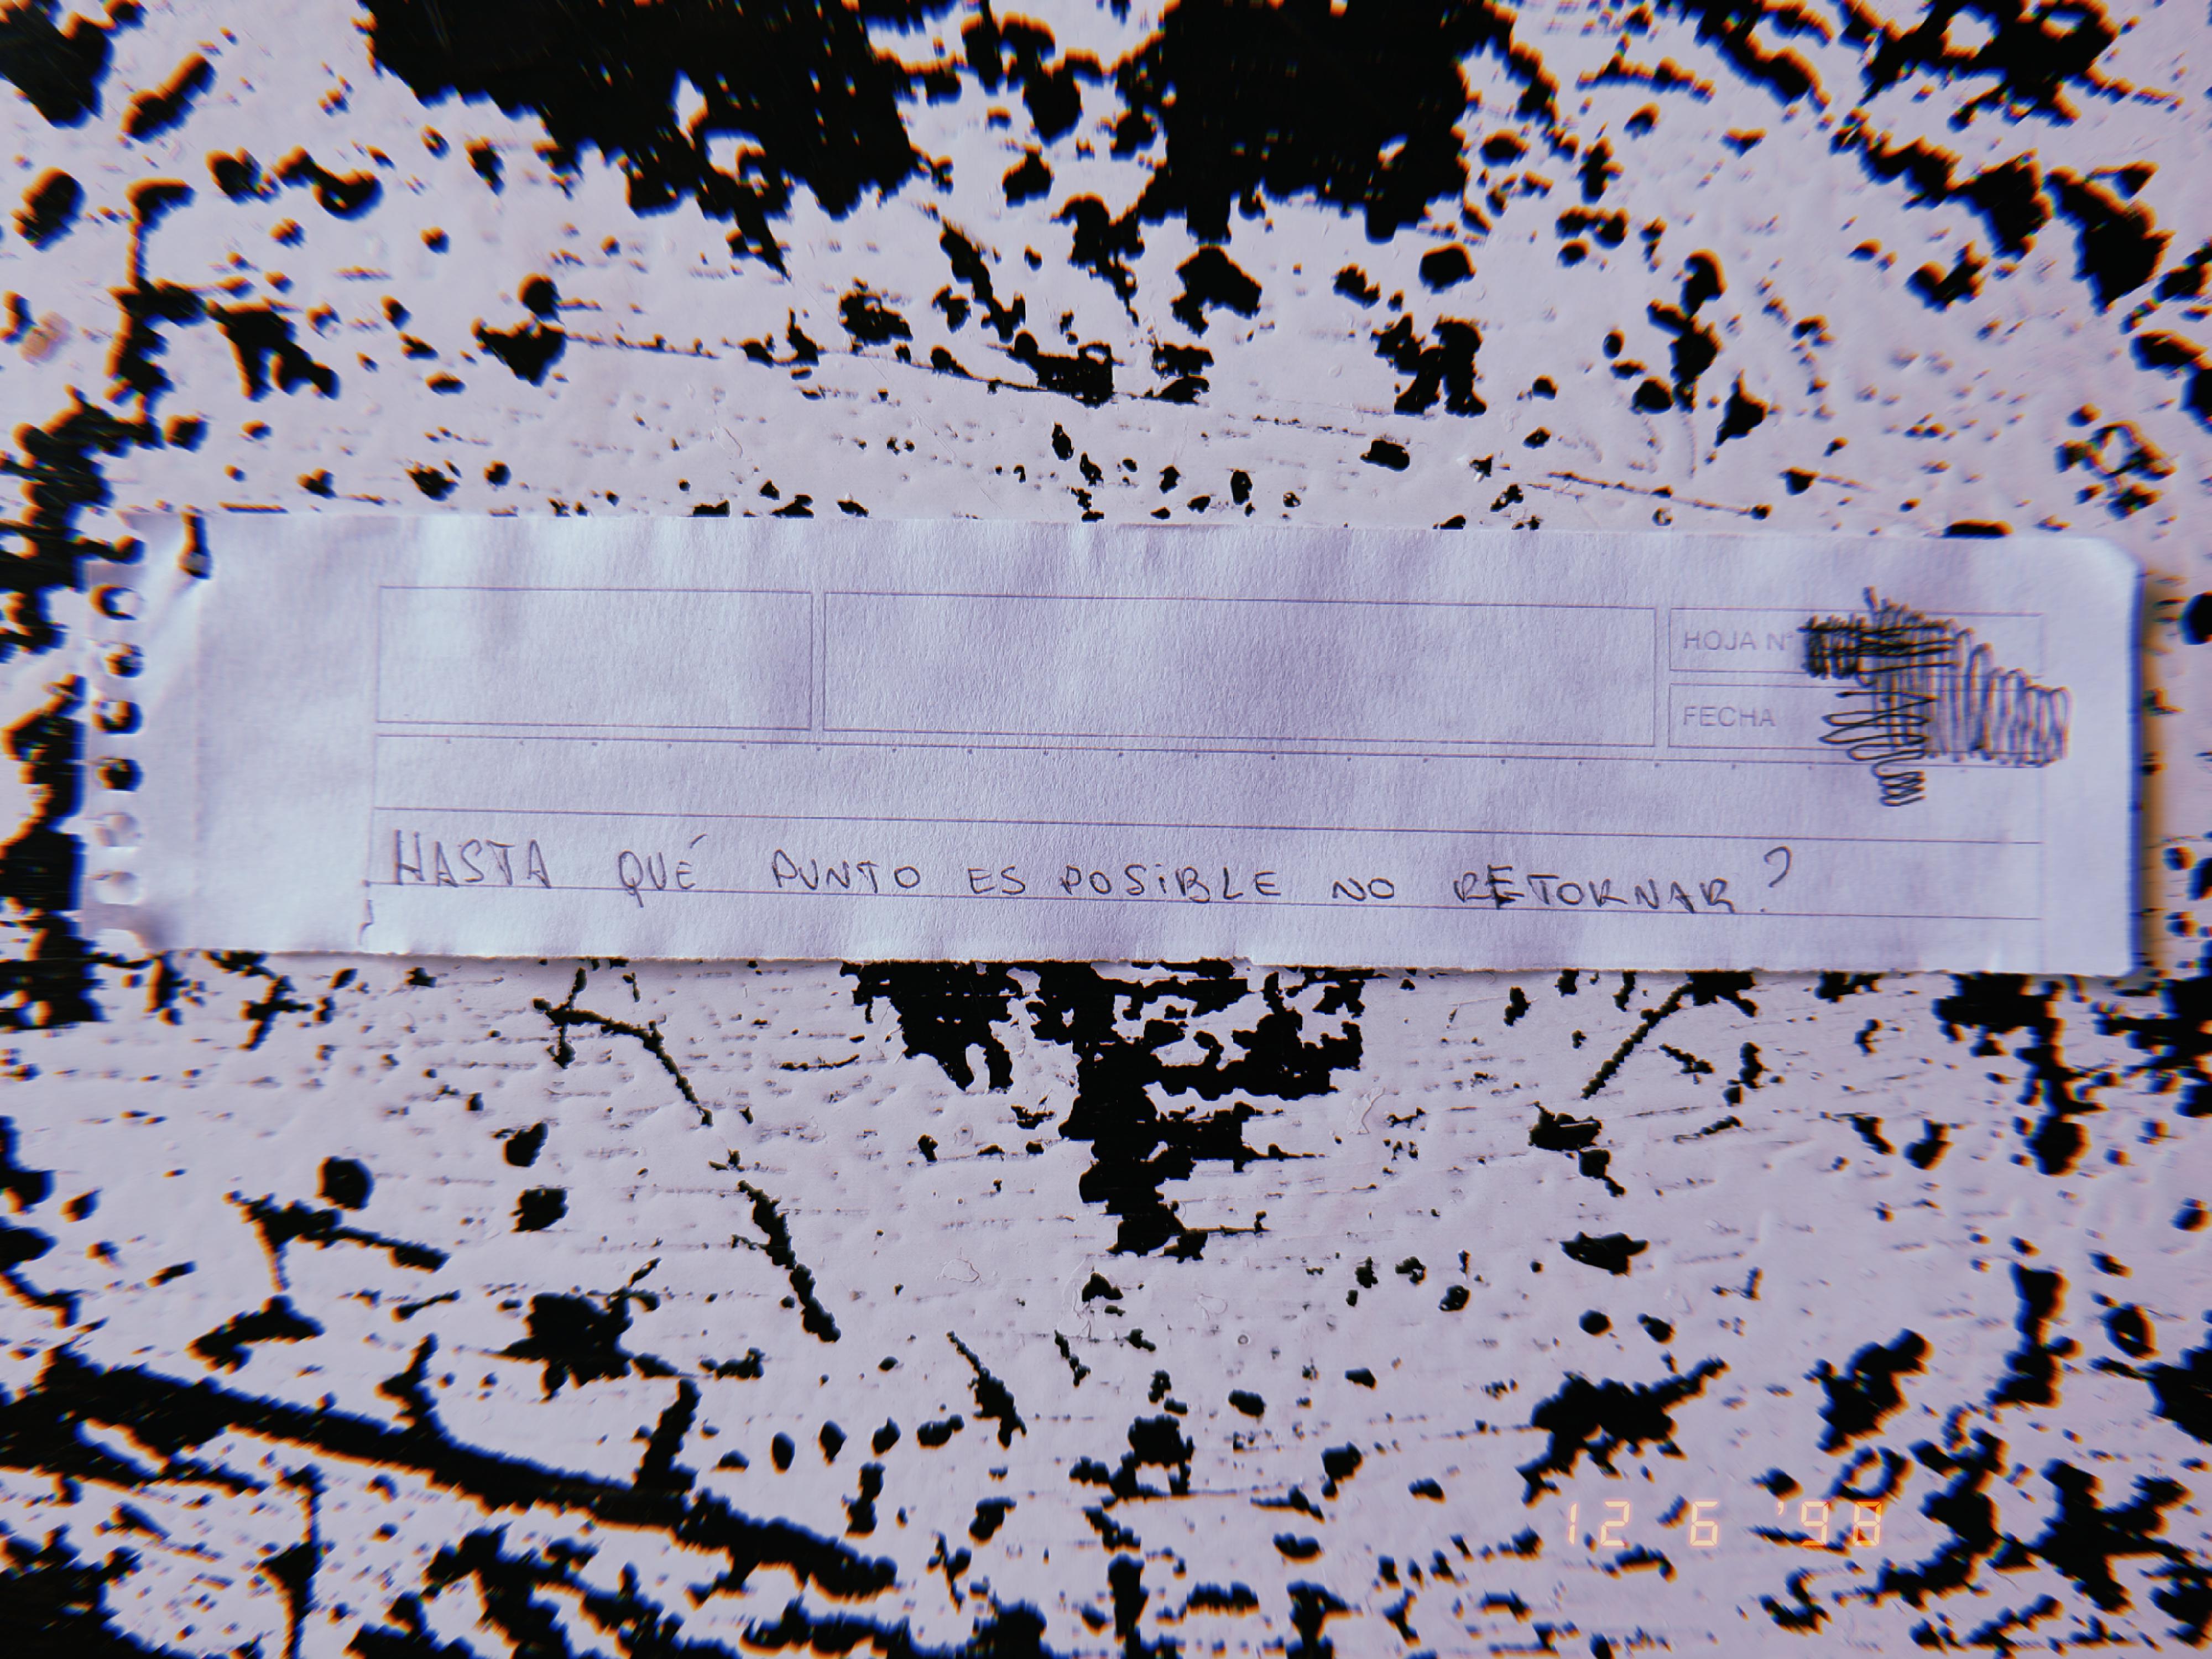 HOJA N°
FECHA
HASTA QUÉ PUNTO ES POSIBLE NO RETORNAR?
12 6 '98